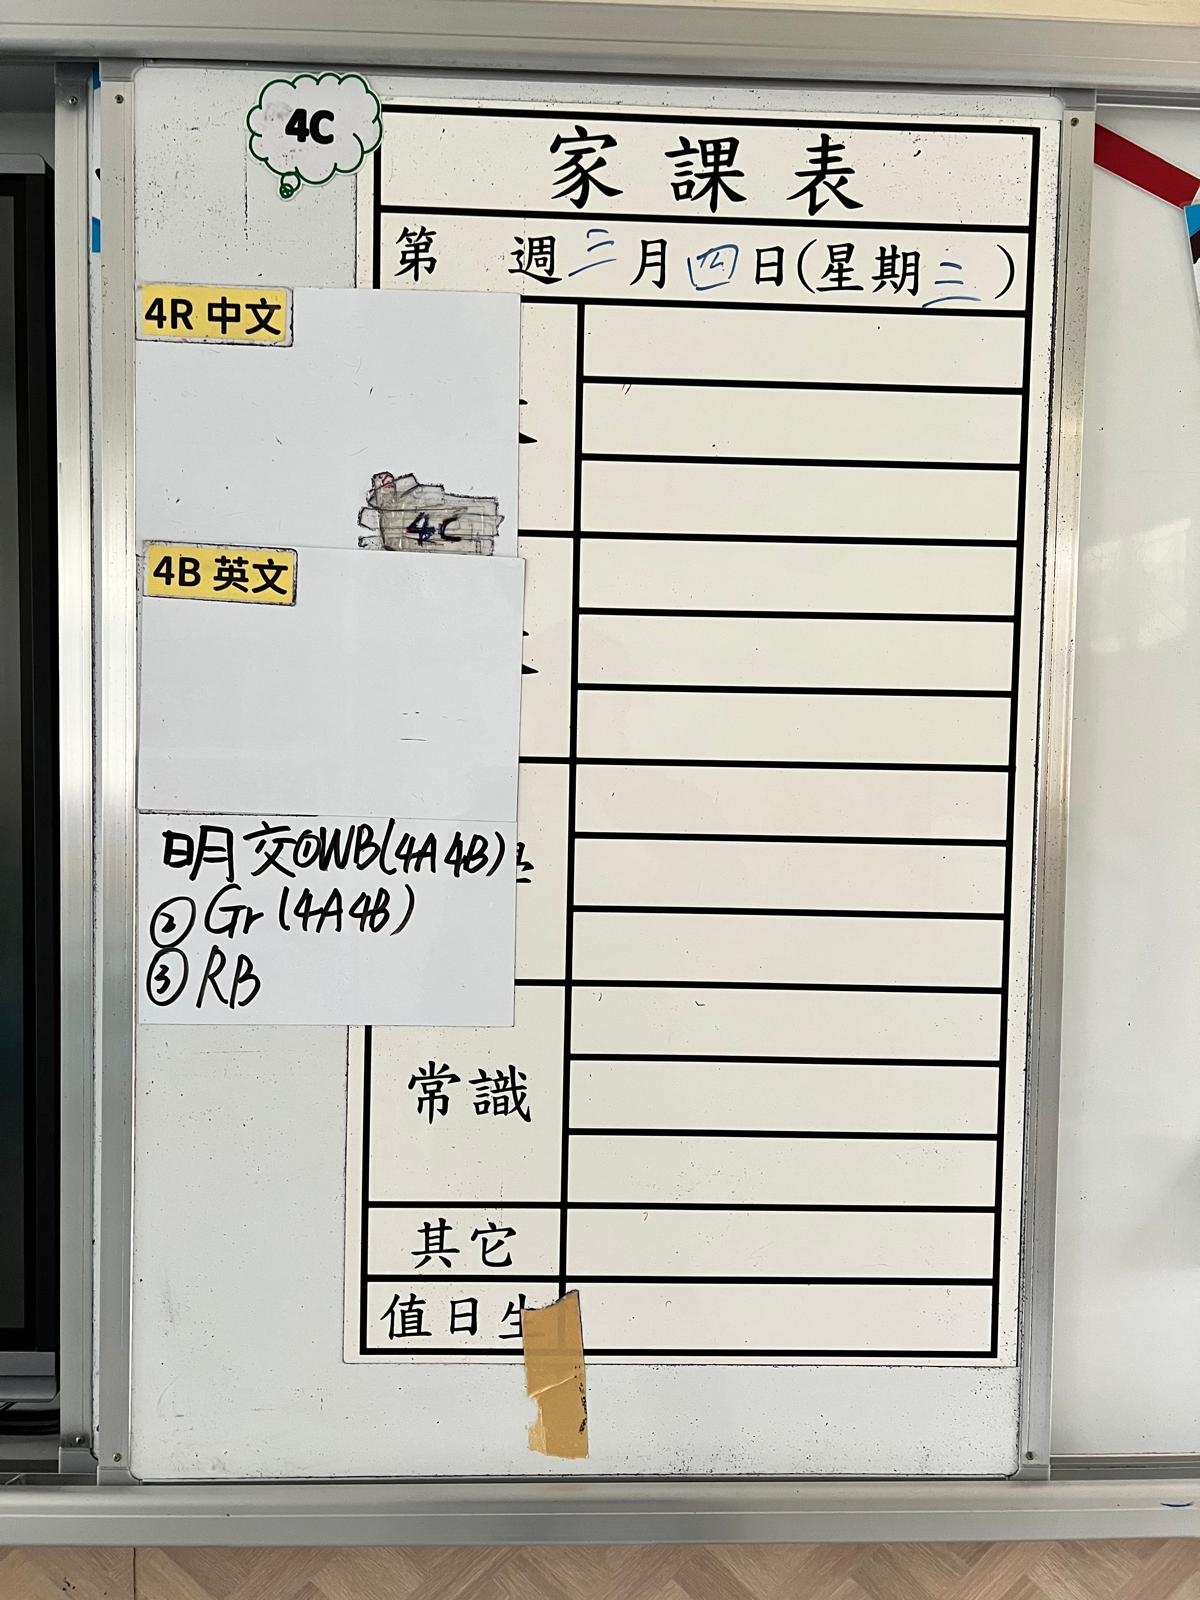 4C
家課表
第 週三月四日(星期三)
4R 中文
4C
4B 英文
明交①WB(4A 4B)
② Gr (4A 4B)
③ RB
常識
其它
值日生